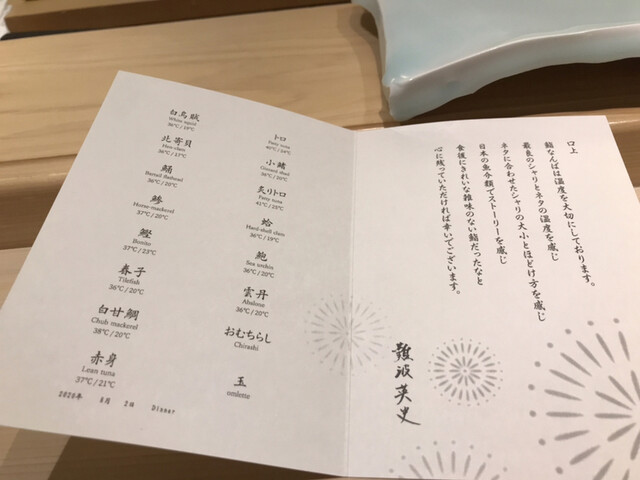 白烏賊
White squid
36℃/19℃
北寄貝
Hen-clam
36℃/17℃
鯒
Bartail flathead
36℃/20℃
鯵
Horse-mackerel
37℃/20℃
鰹
Bonito
37℃/23℃
春子
Tilefish
36℃/20℃
白甘鯛
Chub mackerel
38℃/20℃
赤身
Lean tuna
37℃/21℃
トロ
Fatty tuna
小鰭
Gizzard shad
36℃/20℃
炙りトロ
Fatty tuna
41℃/25℃
蛤
Hard-shell clam
36℃/19℃
鮑
Sea urchin
36℃/20℃
雲丹
Abalone
36℃/20℃
おむちらし
Chirashi
玉
2020年 月 2日 Dinner
口上
鮨なんばは温度を大切にしております。
最良のシャリとネタの温度を感じ
ネタに合わせたシャリの大小とほどけ方を感じ
日本の魚介類でストーリーを感じ
食後にきれいな雑味のない鮨だったなと
心に残っていただければ幸いでございます。
難波英史